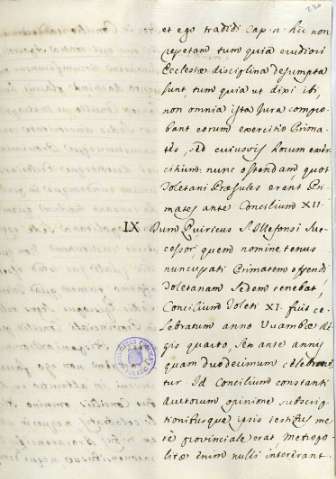 et ego tradidi Cap. n. hic non
repetam tum quia eruditori
Ecclesiæ disciplina desumpta
sunt tum quia ut dixi ibi,
non omnia ista Jura compro-
bant eorum exercitio Prima-
tes, sed cuiusvis horum exer-
citium: nunc ostendam quot
Toletani Præsules erent Pri-
mates ante Concilium XII.
IX Dum Quiricus S. Ilefonsi Suc-
cessor, quem nomine tenus
nuncupati Primatem ostendi
Toletanam Sedem tenebat,
Concilium Toleti XI. fuit ce-
lebratum anno Uvambæ Re-
gis quarto, seo ante annum
quam duodecimum celebrare-
tur. Id Concilium constanti
auctorum opinione subscrip-
tionibusque ipsis testibus me-
re provinciale erat Metropo-
litæ enim nulli intererant.